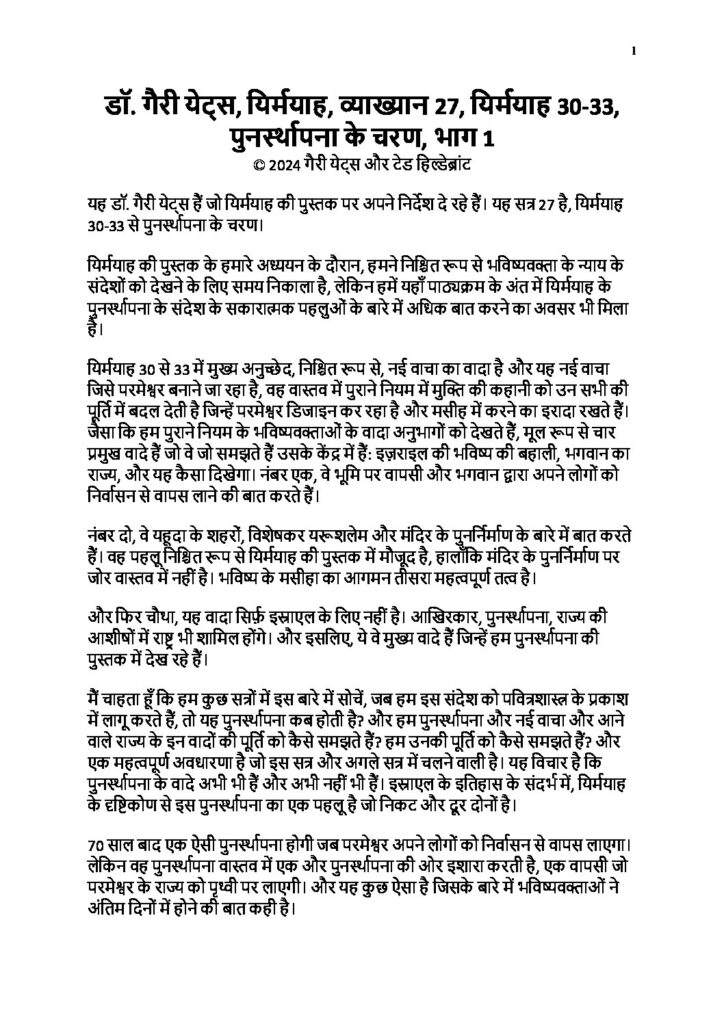 1
डॉ. गैरी येट्स, यिर्मयाह, व्याख्यान 27, यिर्मयाह 30-33,
पुनर्स्थापना के चरण, भाग 1
© 2024 गैरी येट्स और टेड हिल्डेब्रांट
यह डॉ. गैरी येट्स हैं जो यिर्मयाह की पुस्तक पर अपने निर्देश दे रहे हैं। यह सत्र 27 है, यिर्मयाह
30-33 से पुनर्स्थापना के चरण।
यिर्मयाह की पुस्तक के हमारे अध्ययन के दौरान, हमने निश्चित रूप से भविष्यवक्ता के न्याय के
संदेशों को देखने के लिए समय निकाला है, लेकिन हमें यहाँ पाठ्यक्रम के अंत में यिर्मयाह के
पुनर्स्थापना के संदेश के सकारात्मक पहलुओं के बारे में अधिक बात करने का अवसर भी मिला
है।
यिर्मयाह 30 से 33 में मुख्य अनुच्छेद, निश्चित रूप से, नई वाचा का वादा है और यह नई वाचा
जिसे परमेश्वर बनाने जा रहा है, वह वास्तव में पुराने नियम में मुक्ति की कहानी को उन सभी की
पूर्ति में बदल देती है जिन्हें परमेश्वर डिजाइन कर रहा है और मसीह में करने का इरादा रखते हैं।
जैसा कि हम पुराने नियम के भविष्यवक्ताओं के वादा अनुभागों को देखते हैं, मूल रूप से चार
प्रमुख वादे हैं जो वे जो समझते हैं उसके केंद्र में हैं: इज़राइल की भविष्य की बहाली, भगवान का
राज्य, और यह कैसा दिखेगा। नंबर एक, वे भूमि पर वापसी और भगवान द्वारा अपने लोगों को
निर्वासन से वापस लाने की बात करते हैं।
नंबर दो, वे यहूदा के शहरों, विशेषकर यरूशलेम और मंदिर के पुनर्निर्माण के बारे में बात करते
हैं। वह पहलू निश्चित रूप से यिर्मयाह की पुस्तक में मौजूद है, हालाँकि मंदिर के पुनर्निर्माण पर
जोर वास्तव में नहीं है। भविष्य के मसीहा का आगमन तीसरा महत्वपूर्ण तत्व है।
और फिर चौथा, यह वादा सिर्फ़ इस्राएल के लिए नहीं है। आखिरकार, पुनर्स्थापना, राज्य की
आशीषों में राष्ट्र भी शामिल होंगे। और इसलिए, ये वे मुख्य वादे हैं जिन्हें हम पुनर्स्थापना की
पुस्तक में देख रहे हैं।
मैं चाहता हूँ कि हम कुछ सत्रों में इस बारे में सोचें, जब हम इस संदेश को पवित्रशास्त्र के प्रकाश
में लागू करते हैं, तो यह पुनर्स्थापना कब होती है? और हम पुनर्स्थापना और नई वाचा और आने
वाले राज्य के इन वादों की पूर्ति को कैसे समझते हैं? हम उनकी पूर्ति को कैसे समझते हैं? और
एक महत्वपूर्ण अवधारणा है जो इस सत्र और अगले सत्र में चलने वाली है। यह विचार है कि
पुनर्स्थापना के वादे अभी भी हैं और अभी नहीं भी हैं। इस्राएल के इतिहास के संदर्भ में, यिर्मयाह
के दृष्टिकोण से इस पुनर्स्थापना का एक पहलू है जो निकट और दूर दोनों है।
70 साल बाद एक ऐसी पुनर्स्थापना होगी जब परमेश्वर अपने लोगों को निर्वासन से वापस लाएगा।
लेकिन वह पुनर्स्थापना वास्तव में एक और पुनर्स्थापना की ओर इशारा करती है, एक वापसी जो
परमेश्वर के राज्य को पृथ्वी पर लाएगी। और यह कुछ ऐसा है जिसके बारे में भविष्यवक्ताओं ने
अंतिम दिनों में होने की बात कही है।